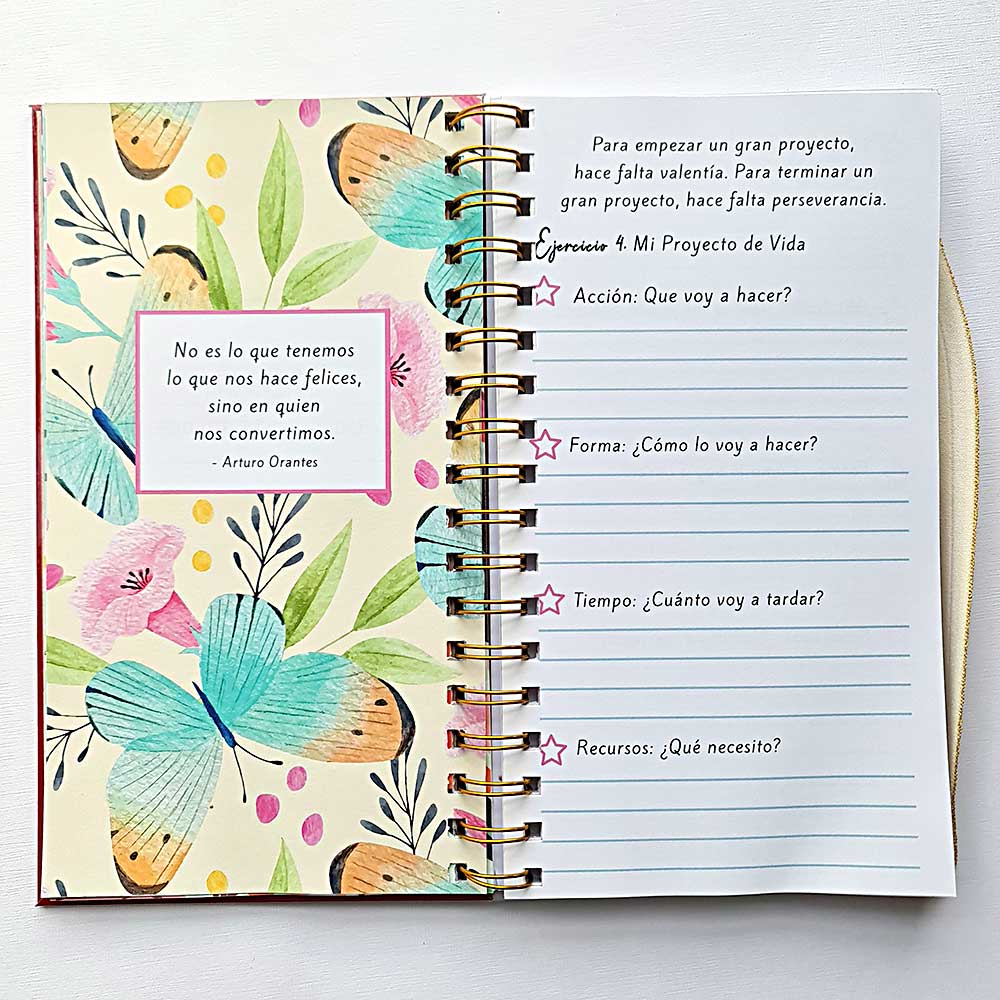 No es lo que tenemos
lo que nos hace felices,
sino en quien
nos convertimos.
- Arturo Orantes
Para empezar un gran proyecto,
hace falta valentía. Para terminar un
gran proyecto, hace falta perseverancia.
Ejercicio 4. Mi Proyecto de Vida
Acción: Que voy a hacer?
Forma: ¿Cómo lo voy a hacer?
Tiempo: ¿Cuánto voy a tardar?
Recursos: ¿Qué necesito?